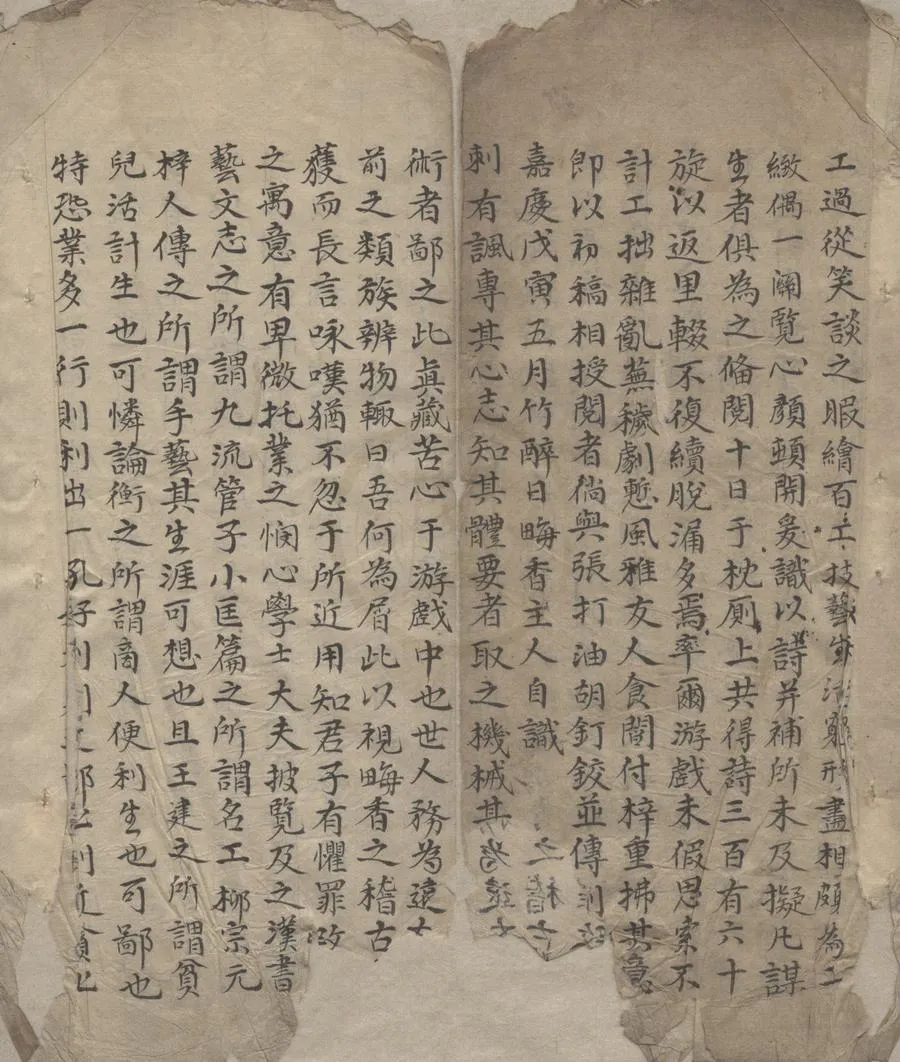 工過從笑談之暇繪百工技藝生活窮形盡相頗為工
緻偶一闌覧心顏頓開爰識以詩并補所未及擬凡謀
生者俱為之俻閱十日于枕厠上共得詩三百有六十
旋以返里輟不復續脫漏多焉率爾游戲未假思索不
計工拙雜亂蕪穢劇慙風雅友人食間付梓重拂其意
即以初稿相授閱者倘與張打油胡釘鉸並傳則
嘉慶戊寅五月竹醉日晦香主人自識
刺有諷專其心志知其體要者取之機械其
術者鄙之此眞藏苦心于游戲中也世人務為遠
前之類族辨物輙曰吾何為屑此以視晦香之稽古
獲而長言咏嘆猶不忽于所近用知君子有懼罪
之寓意有卑微托業之憫心學士大夫披覧及之漢書
藝文志之所謂九流管子小匡篇之所謂名工柳宗元
梓人傳之所謂手藝其生涯可想也且王建之所謂貧
兒活計生也可憐論衡之所謂商人便利生也可鄙也
特恐業多一行則利出一孔好利